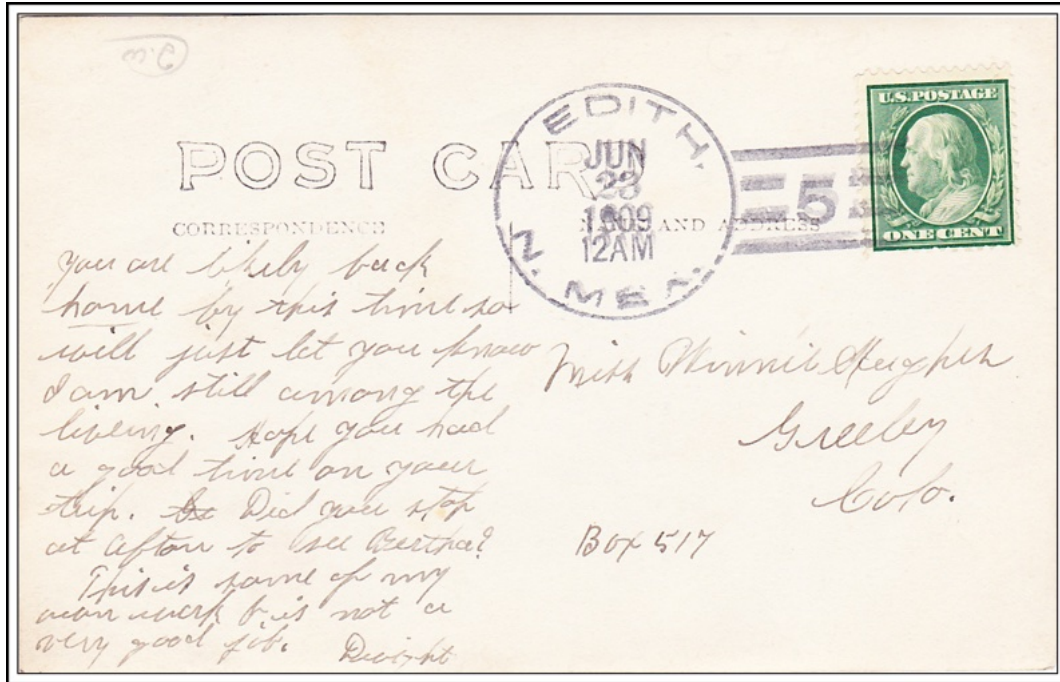 POST CARD
CORRESPONDENCE
AND ADDRESS
EDITH,
N. MEX.
JUN
23
1909
12AM
5
U.S. POSTAGE
ONE CENT
You are likely back
home by this time so
will just let you know
I am still among the
liveing. Hope you had
a good time on your
trip. Did you stop
at Afton to see Bertha?
This is some of my
own work & is not a
very good job.
Dwight
Miss Winnie Hughes
Greeley
Colo.
Box 517